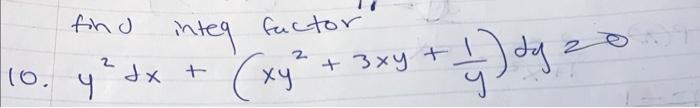 find integ factor
10. y² dx + (xy² + 3xy + 1/y) dy = 0